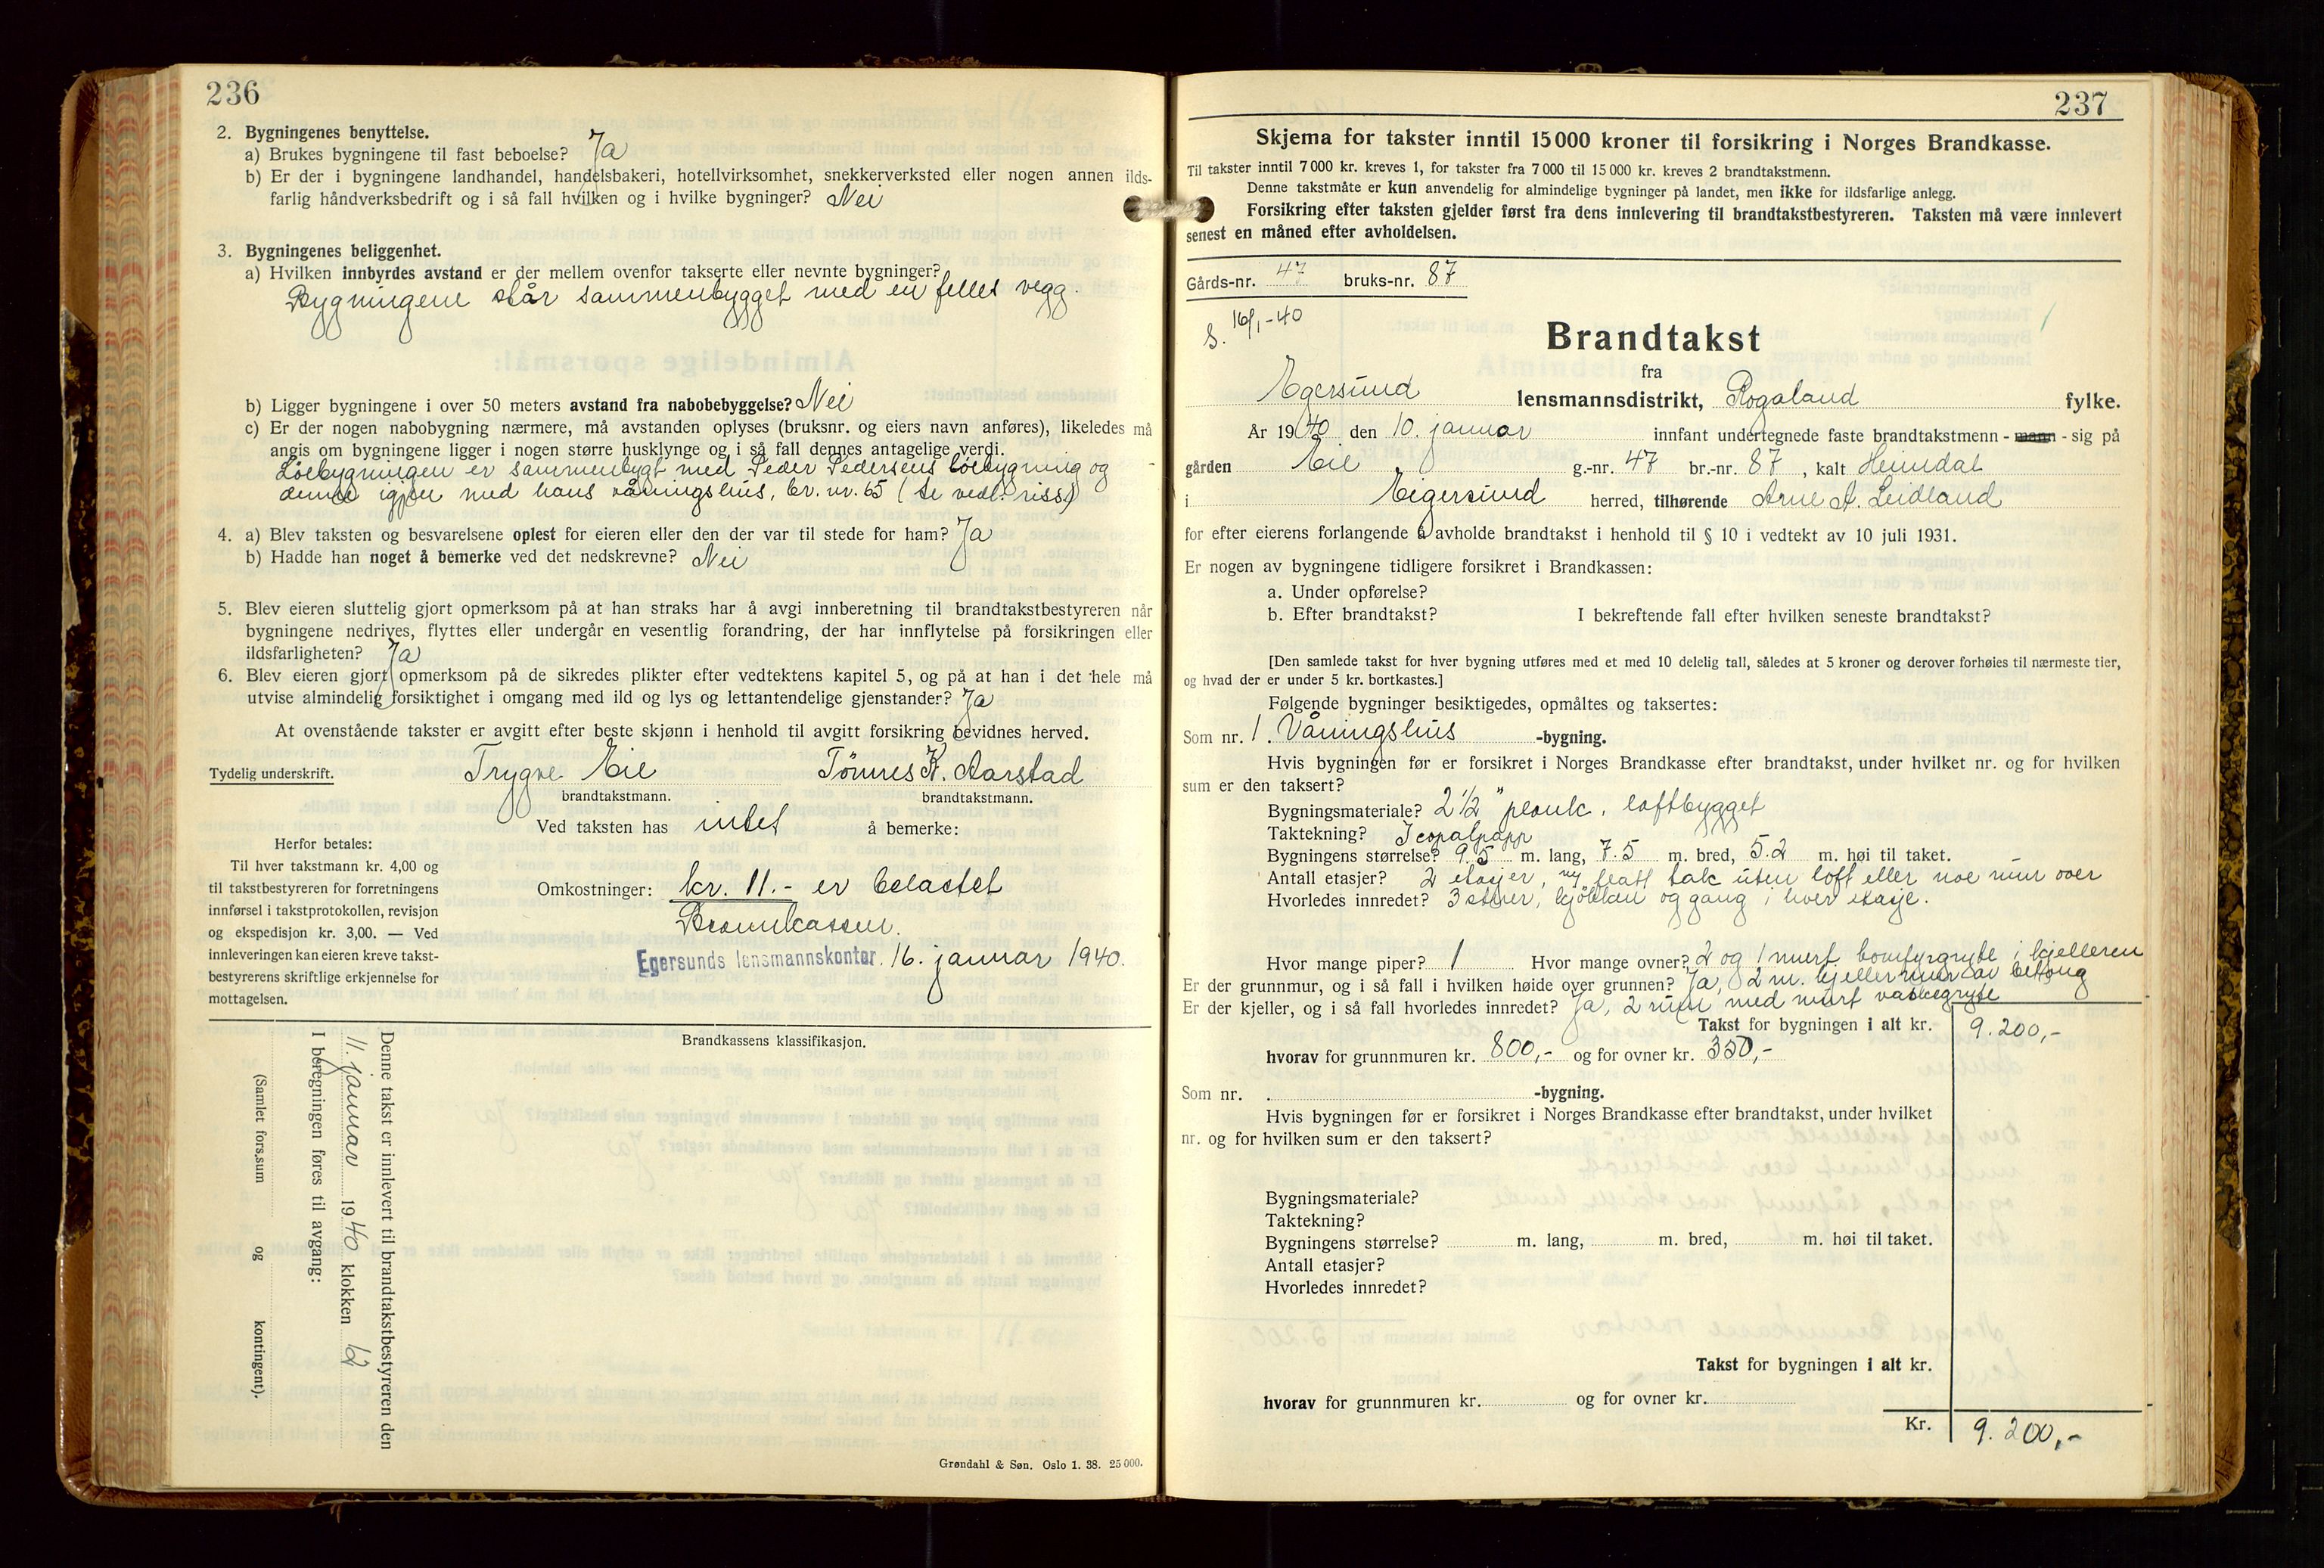 236
2. Bygningenes benyttelse.
a) Brukes bygningene til fast beboelse? Ja
b) Er der i bygningene landhandel, handelsbakeri, hotellvirksomhet, snekkerverksted eller nogen annen ilds-
farlig håndverksbedrift og i så fall hvilken og i hvilke bygninger? Nei
3. Bygningenes beliggenhet.
a) Hvilken innbyrdes avstand er der mellem ovenfor takserte eller nevnte bygninger?
Bygningene står sammenbygget med en felles vegg.
b) Ligger bygningene i over 50 meters avstand fra nabobebyggelse? Nei
c) Er der nogen nabobygning nærmere, må avstanden oplyses (bruksnr. og eiers navn anføres), likeledes må
angis om bygningene ligger i nogen større husklynge og i så fall dennes antagelige verdi.
Löebygningen er sammenbygt med Peder Pedersens löebygning og
denne igjen med hans våningshus, br. nr. 65 (se vedl. riss)
4. a) Blev taksten og besvarelsene oplest for eieren eller den der var til stede for ham? Ja
b) Hadde han noget å bemerke ved det nedskrevne? Nei
5. Blev eieren sluttelig gjort opmerksom på at han straks har å avgi innberetning til brandtakstbestyreren når
bygningene nedrives, flyttes eller undergår en vesentlig forandring, der har innflytelse på forsikringen eller
ildsfarligheten? Ja
6. Blev eieren gjort opmerksom på de sikredes plikter efter vedtektens kapitel 5, og på at han i det hele må
utvise almindelig forsiktighet i omgang med ild og lys og lettantendelige gjenstander? Ja
At ovenstående takster er avgitt efter beste skjønn i henhold til avgitt forsikring bevidnes herved.
Tydelig underskrift. Trygve Eie Tönnes K. Aarstad
brandtakstmann. brandtakstmann.
Ved taksten has intet å bemerke:
Herfor betales:
Til hver takstmann kr. 4,00 og
til takstbestyreren for forretningens
innførsel i takstprotokollen, revisjon
og ekspedisjon kr. 3,00. — Ved
innleveringen kan eieren kreve takst-
bestyrerens skriftlige erkjennelse for
mottagelsen.
Omkostninger: kr. 11.- er belastet
Brannkassen.
Egersunds lensmannskontor. 16. januar 1940.
Brandkassens klassifikasjon.
Denne takst er innlevert til brandtakstbestyreren den
11. januar 1940 klokken 12
I beregningen føres til avgang:
(Samlet fors.sum og kontingent).
Grøndahl & Søn. Oslo 1. 38. 25 000.
237
Skjema for takster inntil 15 000 kroner til forsikring i Norges Brandkasse.
Til takster inntil 7 000 kr. kreves 1, for takster fra 7 000 til 15 000 kr. kreves 2 brandtakstmenn.
Denne takstmåte er kun anvendelig for almindelige bygninger på landet, men ikke for ildsfarlige anlegg.
Forsikring efter taksten gjelder først fra dens innlevering til brandtakstbestyreren. Taksten må være innlevert
senest en måned efter avholdelsen.
Gårds-nr. 47 bruks-nr. 87
S. 16/1-40
Brandtakst
fra
Egersund lensmannsdistrikt, Rogaland fylke.
År 1940 den 10. januar innfant undertegnede faste brandtakstmenn - mann - sig på
gården Eie g.-nr. 47 br.-nr. 87, kalt Heimdal
i Eigersund herred, tilhørende Arne A. Leidland
for efter eierens forlangende å avholde brandtakst i henhold til § 10 i vedtekt av 10 juli 1931.
Er nogen av bygningene tidligere forsikret i Brandkassen:
a. Under opførelse?
b. Efter brandtakst? I bekreftende fall efter hvilken seneste brandtakst?
[Den samlede takst for hver bygning utføres med et med 10 delelig tall, således at 5 kroner og derover forhøies til nærmeste tier,
og hvad der er under 5 kr. bortkastes.]
Følgende bygninger besiktigedes, opmåltes og taksertes:
Som nr. 1. Våningshus -bygning.
Hvis bygningen før er forsikret i Norges Brandkasse efter brandtakst, under hvilket nr. og for hvilken
sum er den taksert?
Bygningsmateriale? 2 1/2" plank, loftbygget
Taktekning? Icopalpapp
Bygningens størrelse? 9.5 m. lang, 7.5 m. bred, 5.2 m. høi til taket.
Antall etasjer? 2 etasjer, flatt tak uten loft eller noe rum over
Hvorledes innredet? 3 stuer, kjökken og gang i hver etasje.
Hvor mange piper? 1 Hvor mange ovner? 2 og 1 murt gryte i kjelleren
Er der grunnmur, og i så fall i hvilken høide over grunnen? Ja, 2 m. kjellermur av betong
Er der kjeller, og i så fall hvorledes innredet? Ja, 2 rum med murt vaskegryte
Takst for bygningen i alt kr. 9.200,-
hvorav for grunnmuren kr. 800,- og for ovner kr. 350,-
Som nr. . -bygning.
Hvis bygningen før er forsikret i Norges Brandkasse efter brandtakst, under hvilket
nr. og for hvilken sum er den taksert?
Bygningsmateriale?
Taktekning?
Bygningens størrelse? m. lang, m. bred, m. høi til taket.
Antall etasjer?
Hvorledes innredet?
Takst for bygningen i alt kr.
hvorav for grunnmuren kr. og for ovner kr.
Kr. 9.200,-